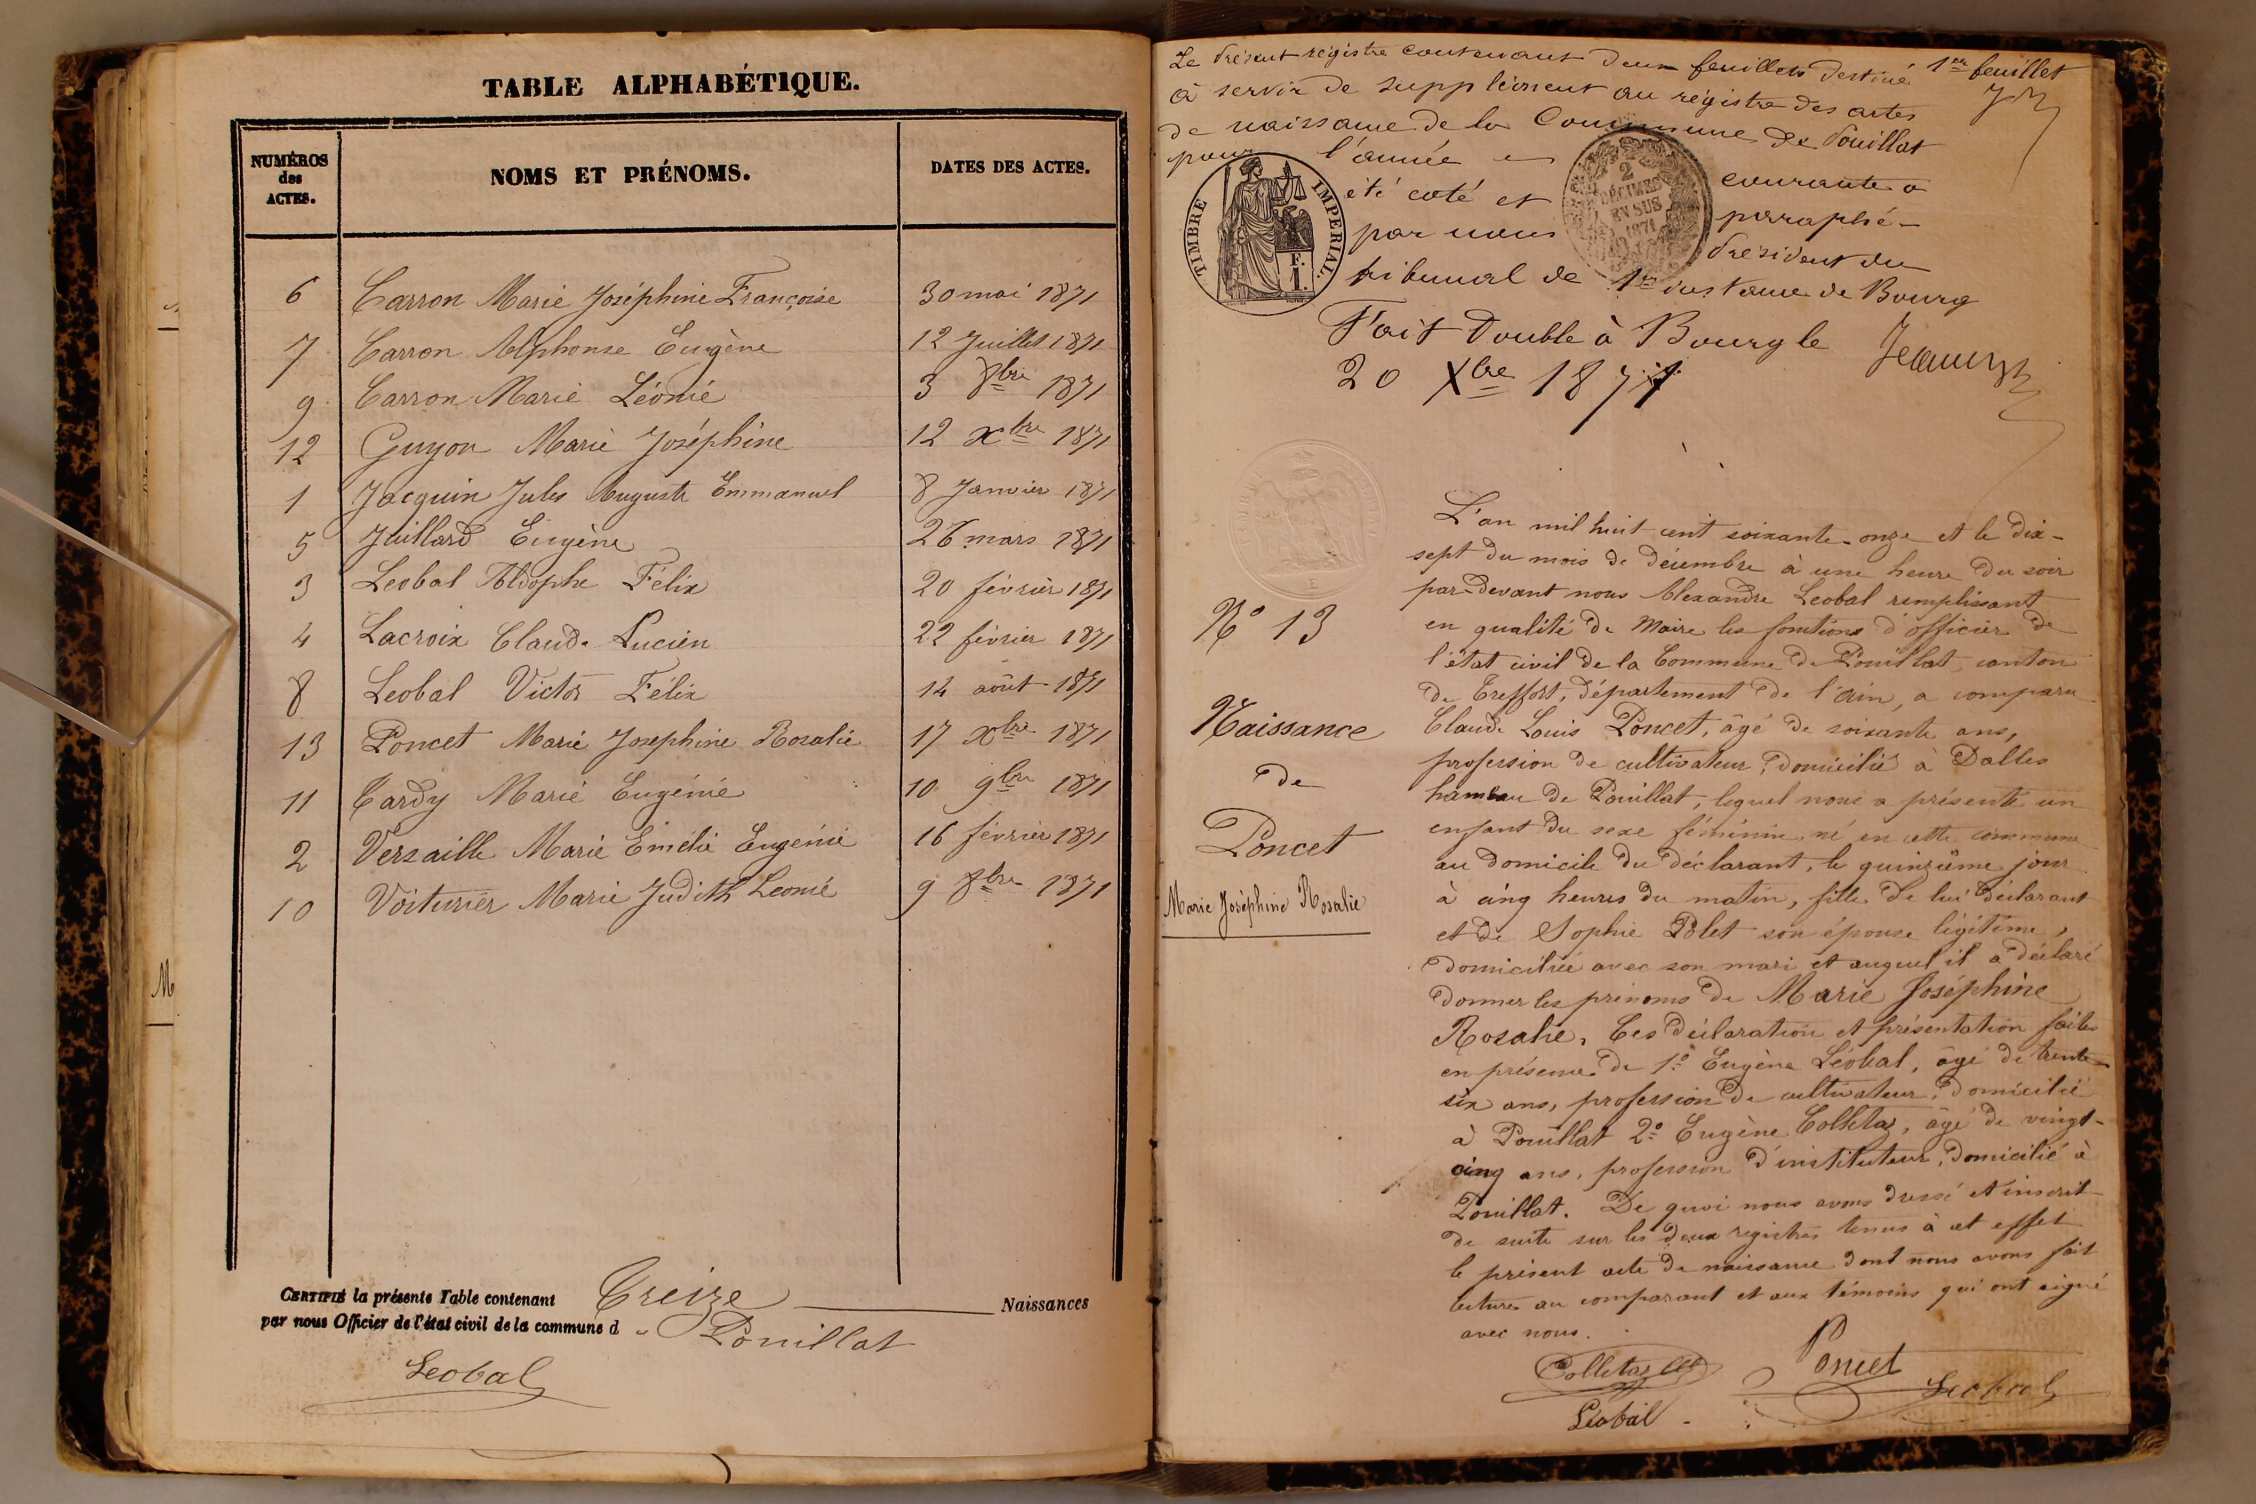 TABLE ALPHABÉTIQUE.
NUMÉROS des ACTES. NOMS ET PRÉNOMS. DATES DES ACTES.
6 Carron Marie Joséphine Françoise 30 mai 1871
7 Carron Alphonse Eugène 12 Juillet 1871
9 Carron Marie Léonie 3 8bre 1871
12 Guyon Marie Joséphine 12 Xbre 1871
1 Jacquin Jules Auguste Emmanuel 8 Janvier 1871
5 Juillard Eugène 26 mars 1871
3 Leobal Aldophe Félix 20 février 1871
4 Lacroix Claude Lucien 22 février 1871
8 Leobal Victor Félix 14 août 1871
13 Poncet Marie Josephine Rosalie 17 Xbre 1871
11 Tardy Marie Eugénie 10 9bre 1871
2 Versaille Marie Emélie Eugénie 16 février 1871
10 Voiturier Marie Judith Leonie 9 8bre 1871
CERTIFIÉ la présente Table contenant Treize Naissances
par nous Officier de l'état civil de la commune d e Pouillat
Leobal
M
Le présent registre contenant deux feuillets destiné 1er feuillet
à servir de supplément au régistre des actes
de naissance de la Commune de Pouillat
pour l'année courante a
été coté et paraphé
par nous Président du
tribunal de 1re instance de Bourg
Fait double à Bourg le
20 Xbre 1871
TIMBRE IMPERIAL.
F.
1.
2
DÉCIMES
EN SUS
1871
N° 13
Naissance
de
Poncet
Marie Joséphine Rosalie
L'an mil huit cent soixante-onze et le dix-
sept du mois de décembre à une heure du soir
par-devant nous Alexandre Leobal remplissant
en qualité de Maire les fonctions d'officier de
l'état civil de la Commune de Pouillat, canton
de Treffort, département de l'ain, a comparu
Claude Louis Poncet, âgé de soixante ans,
profession de cultivateur, domicilié à Dalles
hameau de Pouillat, lequel nous a présenté un
enfant du sexe féminin né en cette commune
au domicile du déclarant, le quinzième jour
à cinq heures du matin, fille de lui déclarant
et de Sophie Polet son épouse légitime,
domiciliée avec son mari et auquel il a déclaré
donner les prénoms de Marie Joséphine
Rosalie. Ces déclaration et présentation faites
en présence de 1° Eugène Léobal, âgé de trente-
six ans, profession de cultivateur, domicilié
à Pouillat 2° Eugène Colletaz, âgé de vingt-
cinq ans, profession d'instituteur, domicilié à
Pouillat. De quoi nous avons dressé et inscrit
de suite sur les deux registres tenus à cet effet
le présent acte de naissance dont nous avons fait
lecture au comparant et aux témoins qui ont signé
avec nous.
Colletaz Poncet Leobal
Léobal